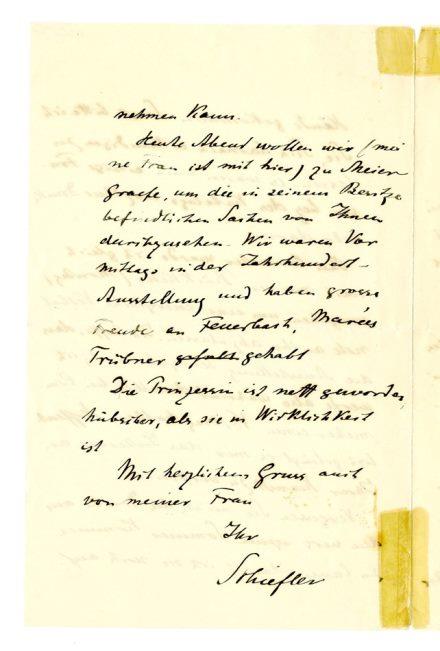 nehmen kann.
Heute Abend wollen wir (mei
ne Frau ist mit hier) zu Meier
Graefe, um die in seinem Besitze
befindlichen Sachen von Ihnen
durchzusehen. Wir waren Vor
mittags in der Jahrhundert-
Ausstellung und haben grosse
Freude an Feuerbach, Marées
Trübner gehabt
Die Prinzessin ist nett geworden,
hübscher, als sie in Wirklichkeit
ist
Mit herzlichem Gruss auch
von meiner Frau
Ihr
Schiefler